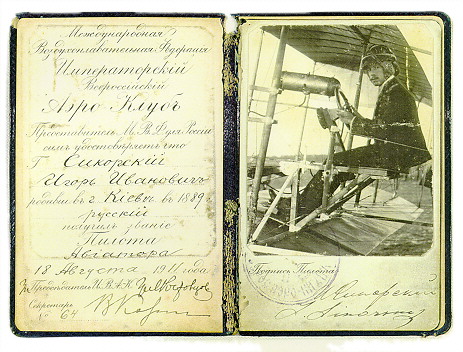 Международная
Воздухоплавательная Федерація
Императорскій
Всероссійскій
Аэро-Клубъ
Представитель М. В. Ф. для Россіи
симъ удостовѣряетъ что
Г Сикорскій
Игорь Ивановичъ
родивш въ г. Кіевѣ въ 1889 г.
русскій
получилъ званіе
Пилота
Авіатора
18 Августа 1911 года
Предсѣдатель И. В. А. К.
Секретарь
№ 64
Подпись Пилота
И Сикорскій